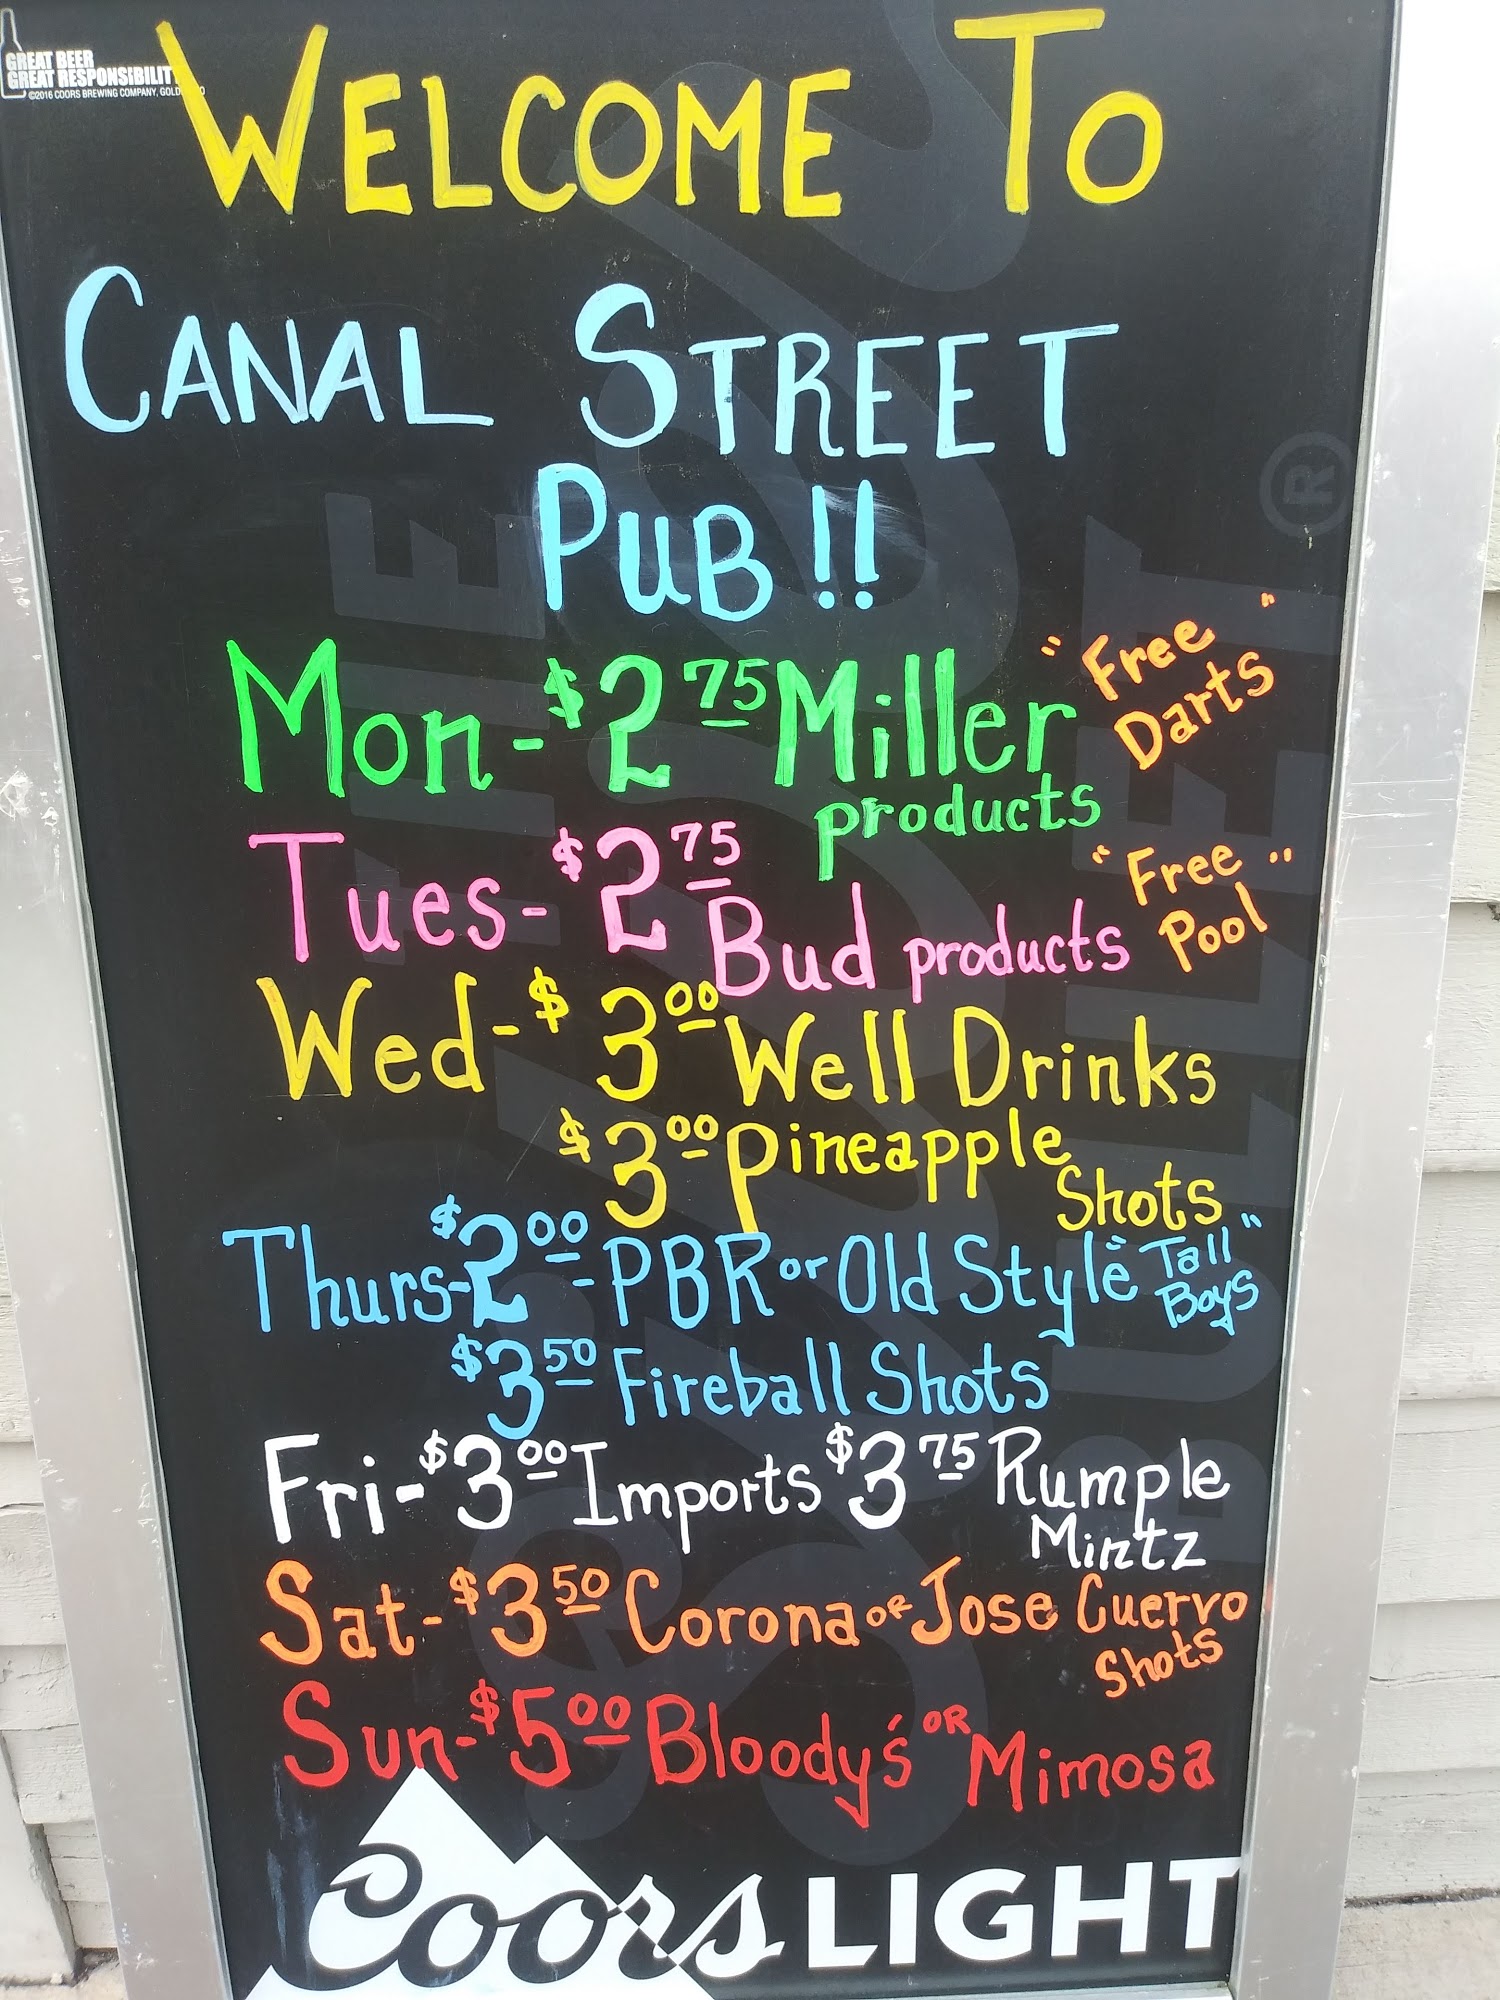 GREAT BEER
GREAT RESPONSIBILIT
©2016 COORS BREWING COMPANY, GOLD
WELCOME TO
CANAL STREET
PUB !!
Mon - $2.75 Miller "Free
products Darts"
Tues - $2.75 Bud products "Free
Pool"
Wed - $3.00 Well Drinks
$3.00 Pineapple
Shots
Thurs - $2.00 - PBR or Old Style "Tall
Boys"
$3.50 Fireball Shots
Fri - $3.00 Imports $3.75 Rumple
Mintz
Sat - $3.50 Corona or Jose Cuervo
Shots
Sun - $5.00 Bloody's OR Mimosa
Coors LIGHT
THE SILVER BULLET ®